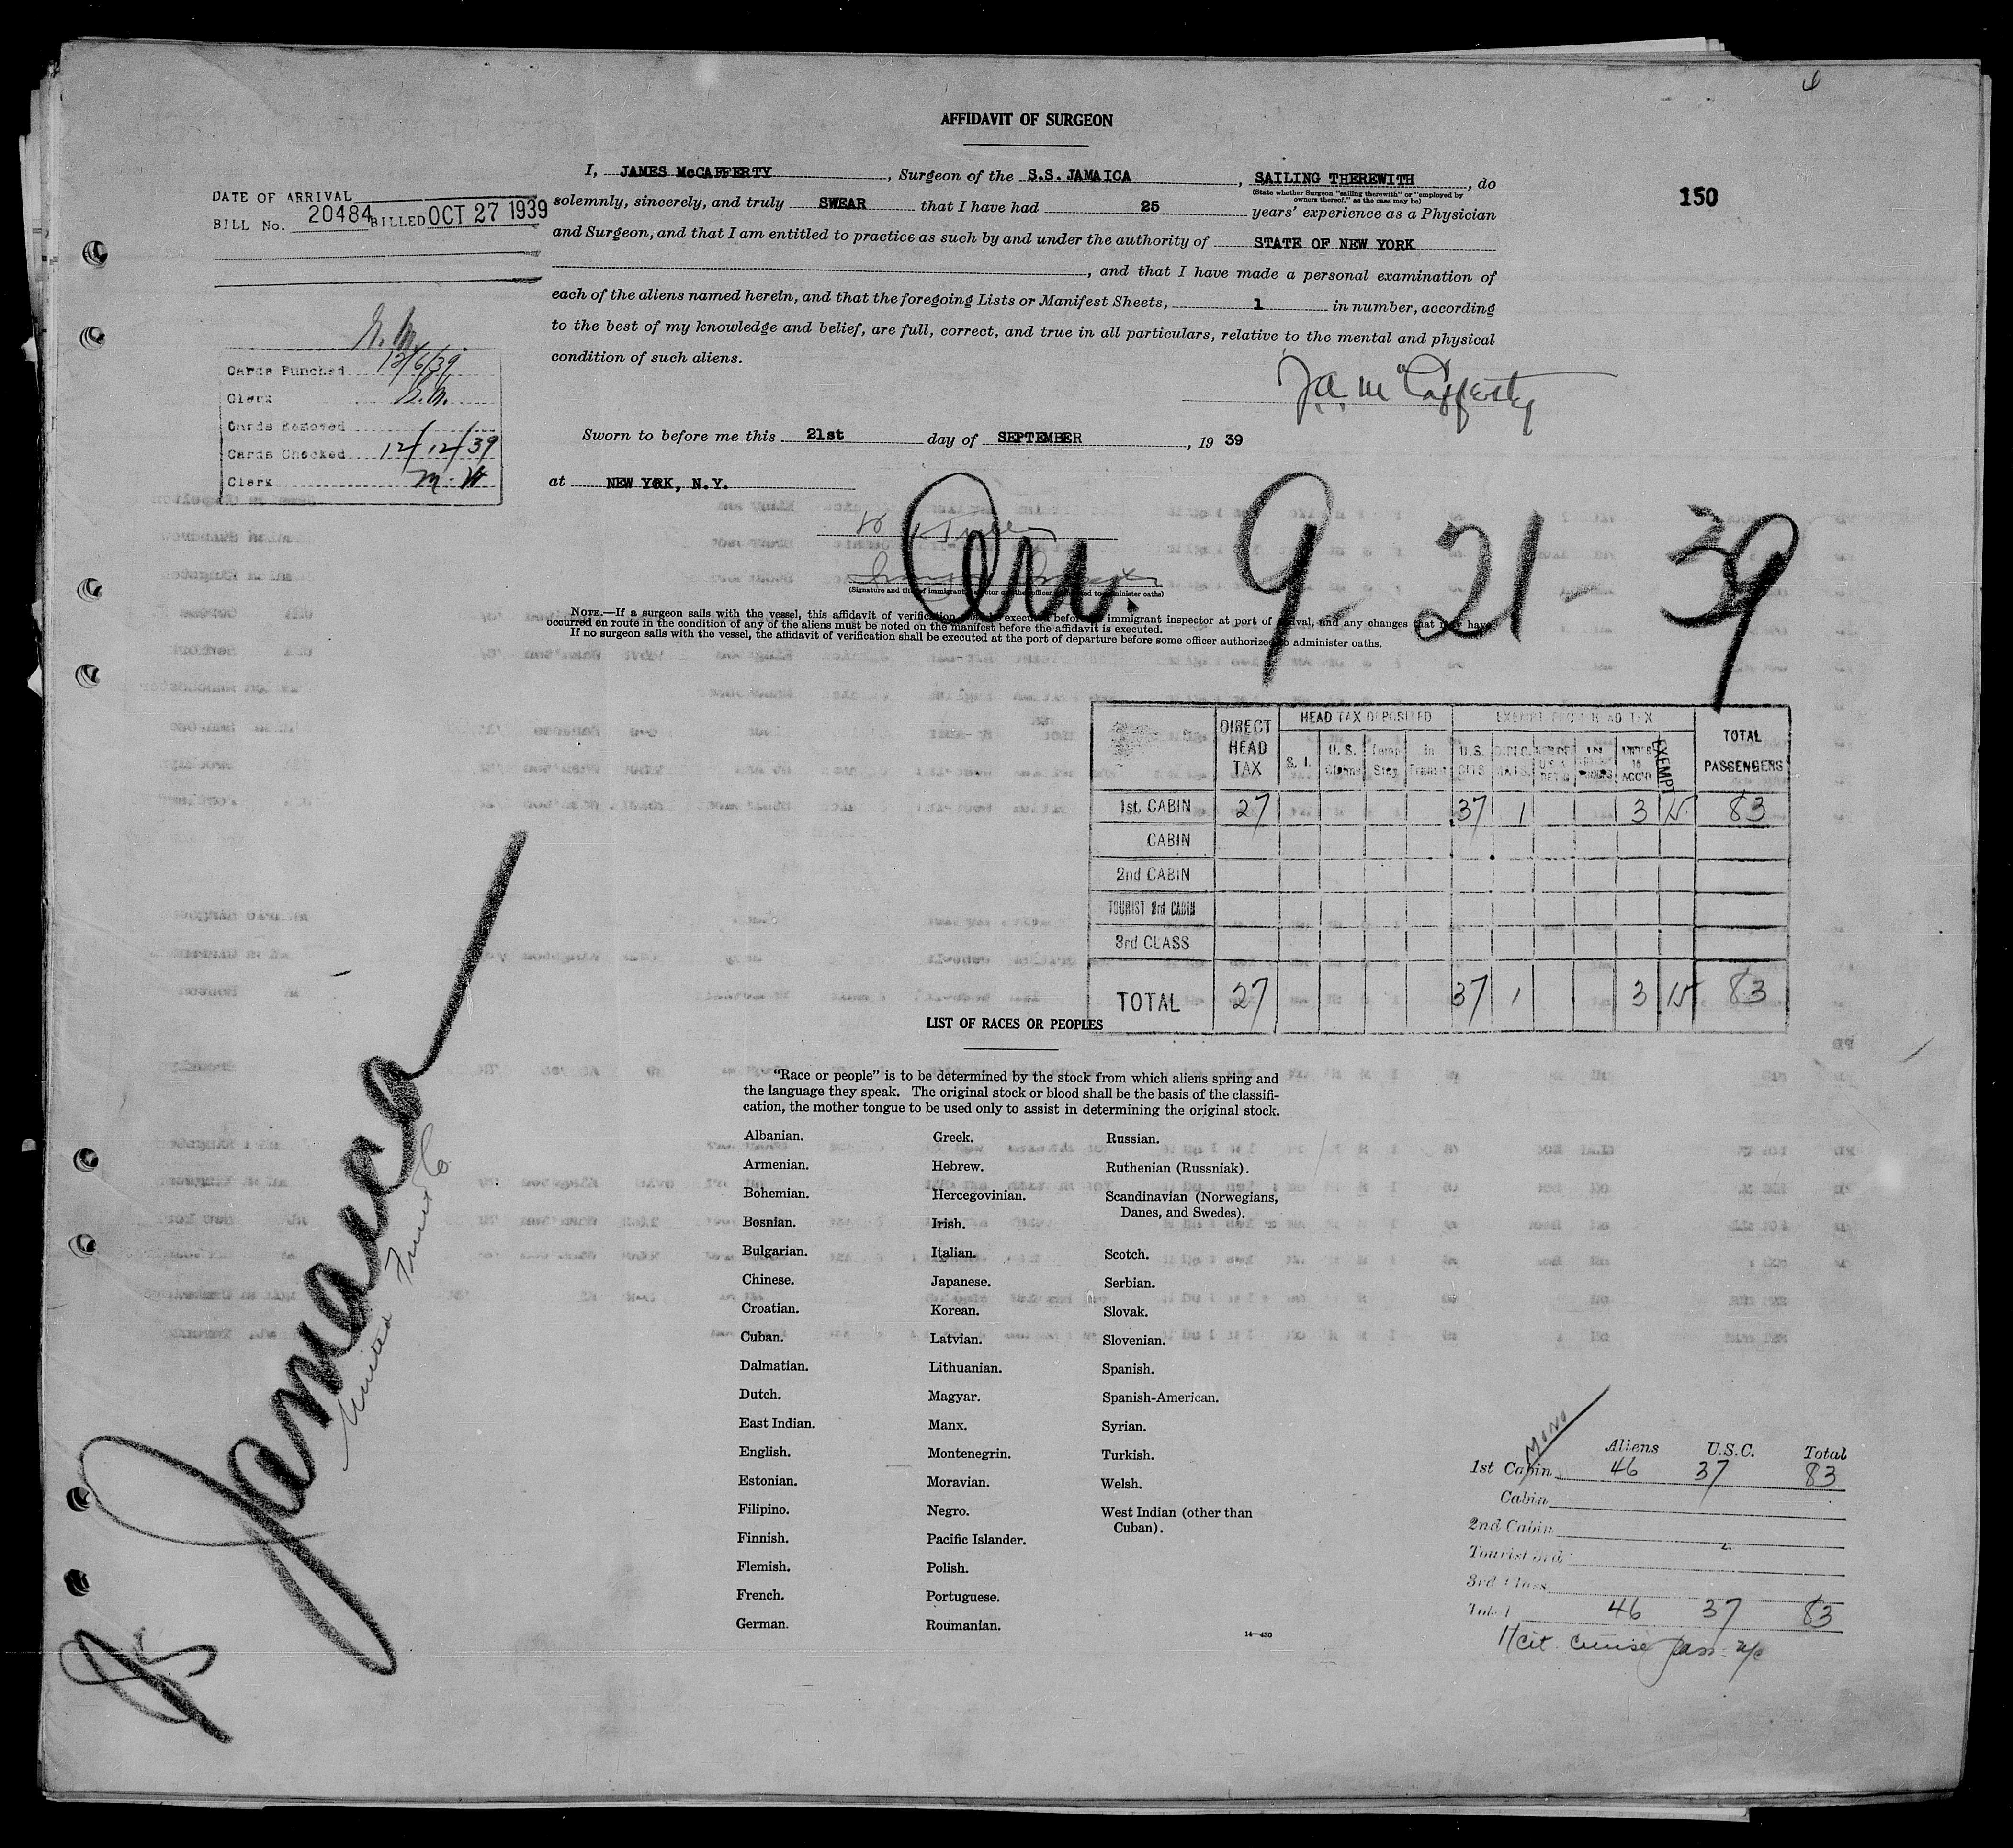 AFFIDAVIT OF SURGEON
150
DATE OF ARRIVAL
BILL No. 20484 BILLED OCT 27 1939
I, JAMES McCAFFERTY, Surgeon of the S.S. JAMAICA, SAILING THEREWITH, do
(State whether Surgeon "sailing therewith" or "employed by
owners thereof," as the case may be)
solemnly, sincerely, and truly SWEAR that I have had 25 years' experience as a Physician
and Surgeon, and that I am entitled to practice as such by and under the authority of STATE OF NEW YORK
, and that I have made a personal examination of
each of the aliens named herein, and that the foregoing Lists or Manifest Sheets, 1 in number, according
to the best of my knowledge and belief, are full, correct, and true in all particulars, relative to the mental and physical
condition of such aliens.
Cards Punched 12/6/39
Clerk
Cards Removed
Cards Checked 12/12/39
Clerk M. W
J A McCafferty
Sworn to before me this 21st day of SEPTEMBER, 19 39
at NEW YORK, N.Y.
Arr. 9-21-39
(Signature and title of immigrant inspector or other officer authorized to administer oaths)
NOTE.—If a surgeon sails with the vessel, this affidavit of verification executed before immigrant inspector at port of arrival, and any changes that may have
occurred en route in the condition of any of the aliens must be noted on the manifest before the affidavit is executed.
If no surgeon sails with the vessel, the affidavit of verification shall be executed at the port of departure before some officer authorized to administer oaths.
DIRECT HEAD TAX
HEAD TAX DEPOSITED
EXEMPT FROM HEAD TAX
TOTAL PASSENGERS
S. I. U.S. Claims Temp Stay In Transit U.S. CITS. DIPLOMATS. UNDER 16 ACC'D EXEMPT
1st. CABIN 27 37 1 3 15 83
CABIN
2nd CABIN
TOURIST 3rd CABIN
3rd CLASS
TOTAL 27 37 1 3 15 83
Jamaica
United Fruit Co.
LIST OF RACES OR PEOPLES
"Race or people" is to be determined by the stock from which aliens spring and
the language they speak. The original stock or blood shall be the basis of the classifi-
cation, the mother tongue to be used only to assist in determining the original stock.
Albanian.
Armenian.
Bohemian.
Bosnian.
Bulgarian.
Chinese.
Croatian.
Cuban.
Dalmatian.
Dutch.
East Indian.
English.
Estonian.
Filipino.
Finnish.
Flemish.
French.
German.
Greek.
Hebrew.
Hercegovinian.
Irish.
Italian.
Japanese.
Korean.
Latvian.
Lithuanian.
Magyar.
Manx.
Montenegrin.
Moravian.
Negro.
Pacific Islander.
Polish.
Portuguese.
Roumanian.
Russian.
Ruthenian (Russniak).
Scandinavian (Norwegians,
Danes, and Swedes).
Scotch.
Serbian.
Slovak.
Slovenian.
Spanish.
Spanish-American.
Syrian.
Turkish.
Welsh.
West Indian (other than
Cuban).
14—430
Aliens U.S.C. Total
1st Cabin 46 37 83
Cabin
2nd Cabin
Tourist 3rd
3rd Class
Total 46 37 83
11 cit. cruise pass.